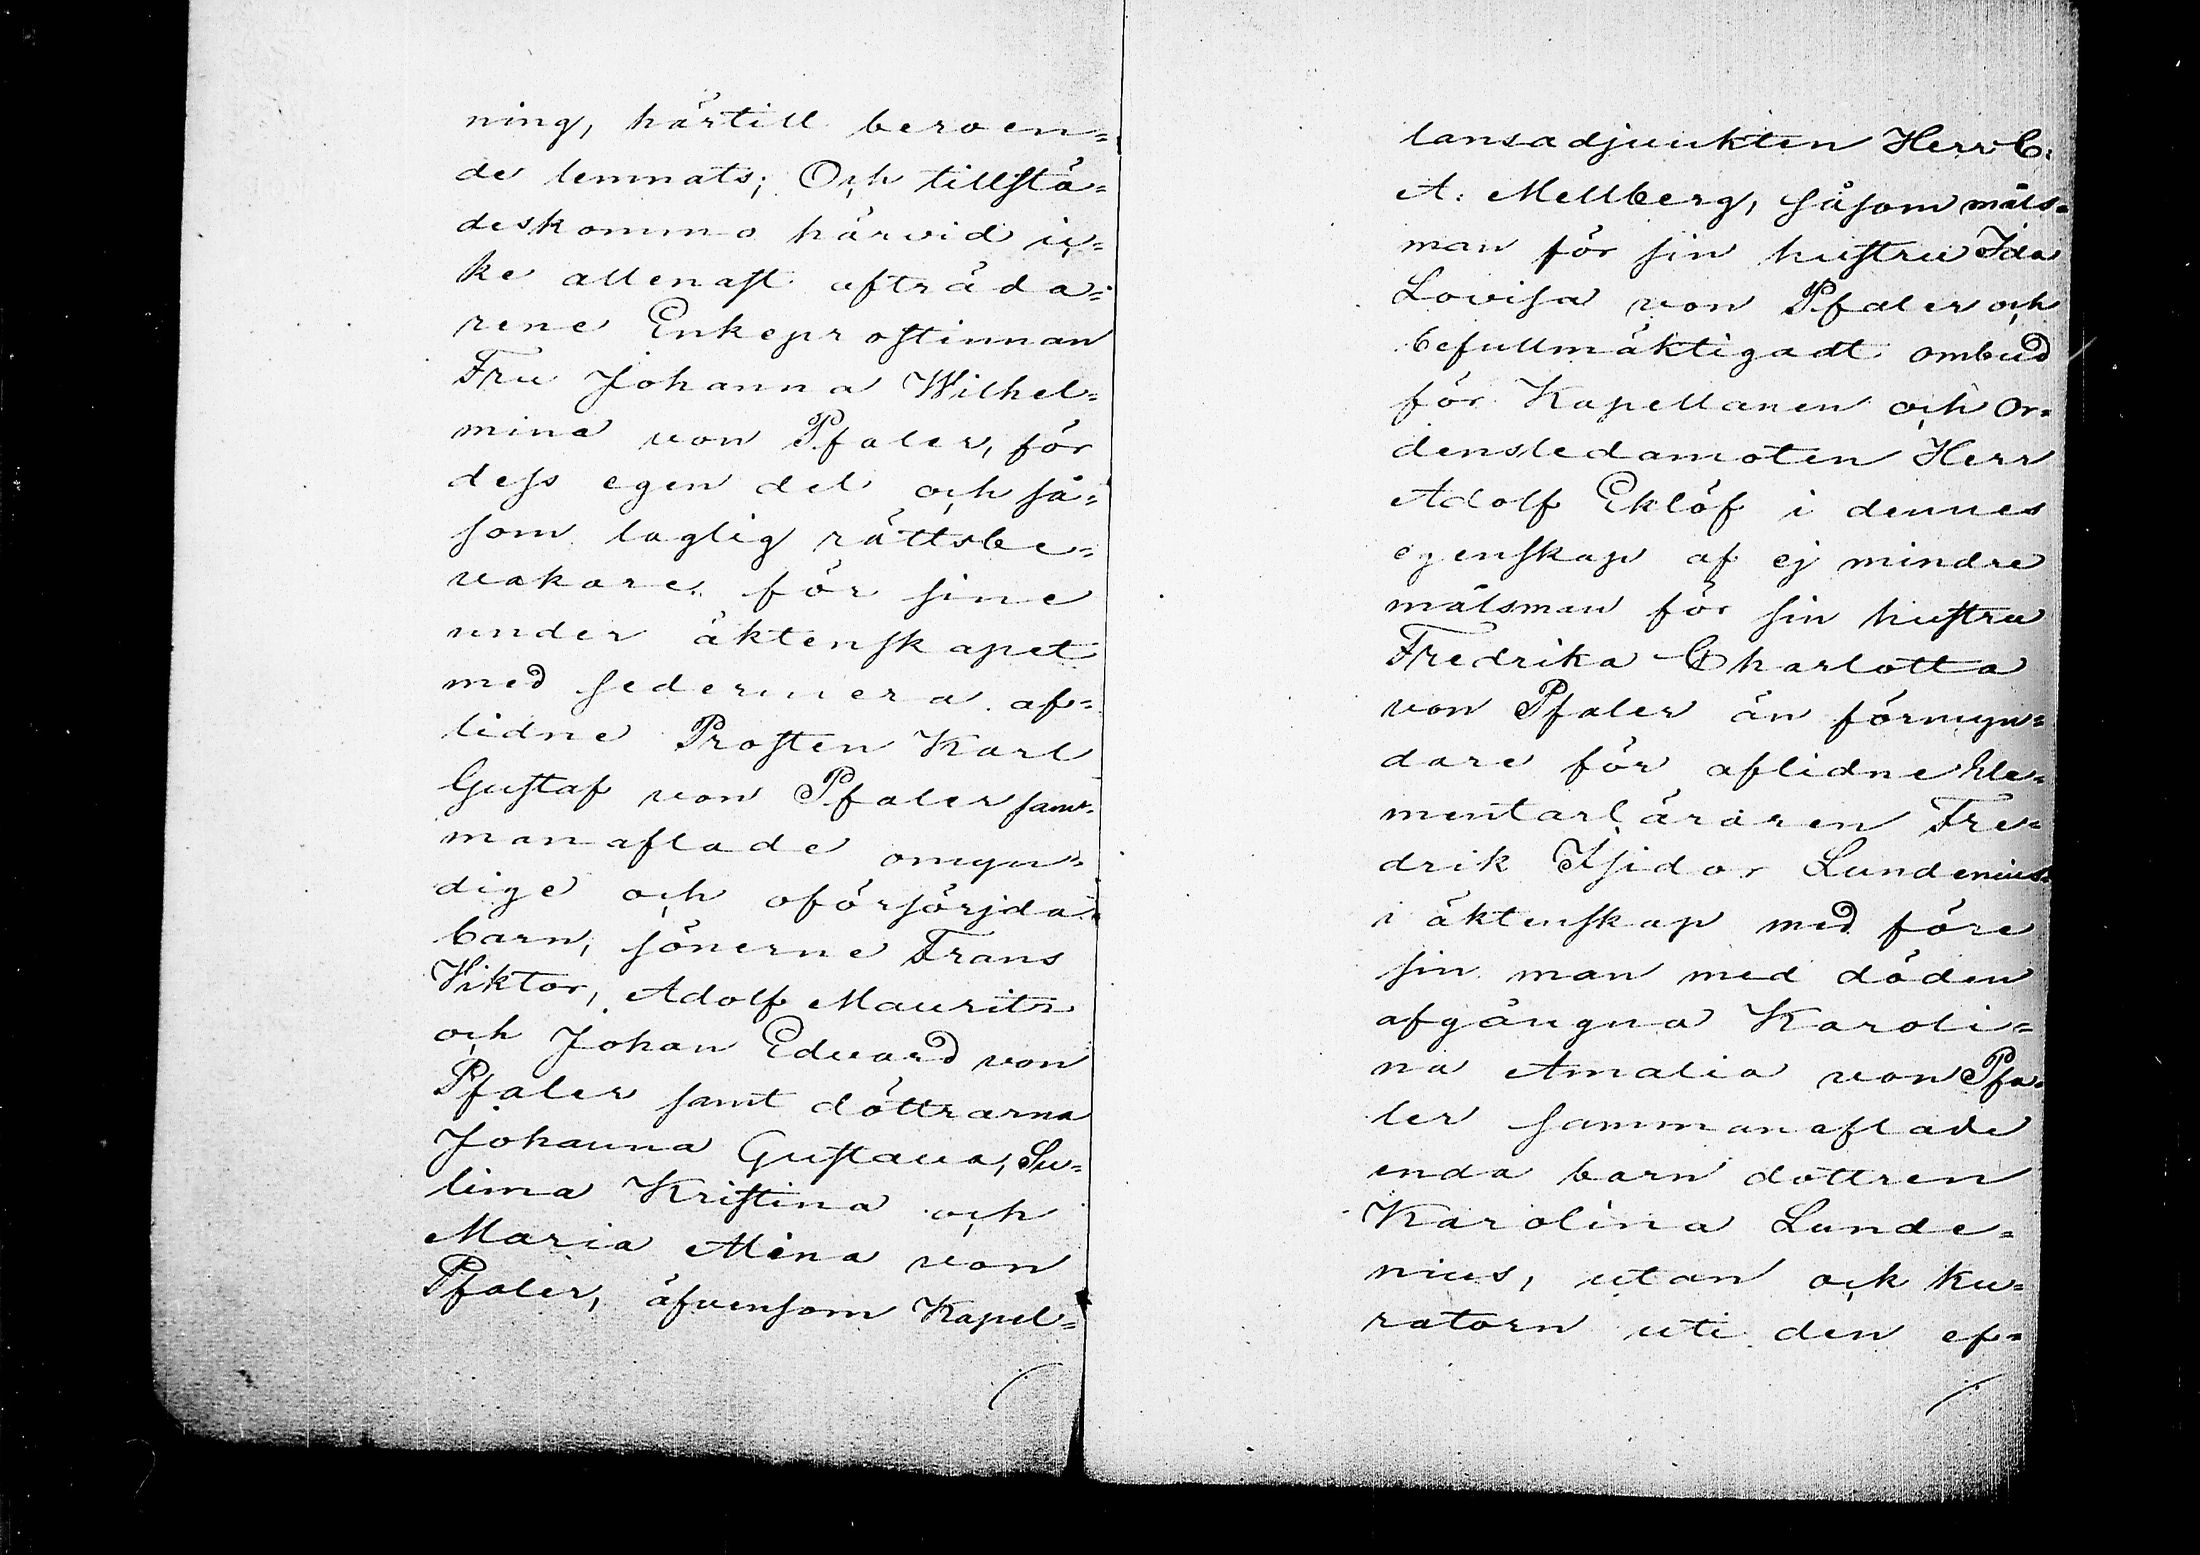 ning, härtill beroen=
de lemnats; Och tillstä=
deskommo härvid ic=
ke allenast afträda=
rene Enkeprostinnan
Fru Johanna Wilhel=
mina von Pfaler, för
dess egen del och så=
som laglig rättsbe=
vakare för sine
under äktenskapet
med sedermera af=
lidne Prosten Karl
Gustaf von Pfaler sam=
manaflade omyn=
dige och oförsörjda
barn, sönerne Frans
Viktor, Adolf Mauritz
och Johan Edvard von
Pfaler samt döttrarna
Johanna Gustava, Su=
lima Kristina och
Maria Mina von
Pfaler, äfvensom Kapel=
lansadjunkten Herr C.
A. Mellberg, såsom måls=
man för sin hustru Ida
Lovisa von Pfaler och
befullmäktigadt ombud
för Kapellanen och Or=
densledamoten Herr
Adolf Eklöf i dennes
egenskap af ej mindre
målsman för sin hustru
Fredrika Charlotta
von Pfaler än förmyn=
dare för aflidne Ele=
mentarläraren Fre=
drik Isidor Lundenius
i äktenskap med före
sin man med döden
afgångna Karoli=
na Amalia von Pfa=
ler sammanaflade
enda barn dottren
Karolina Lunde=
nius, utan ock ku=
ratorn uti den ef=